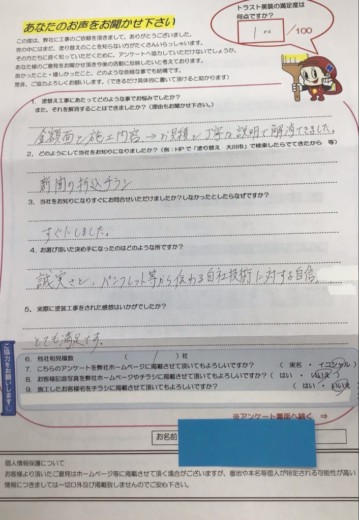 トラスト美装の満足度は
何点ですか？
100 /100
あなたのお声をお聞かせ下さい
この度は、弊社に工事のご依頼を頂きまして、ありがとうございました。
良かったこと・嬉しかったこと、どのような些細な事でも結構です。
是非、ご協力よろしくお願いします。(できるだけ具体的に書いて頂けると助かります)
1. 塗替え工事にあたってどのような事でお悩みでしたか？
また、それを解消することはできましたか？(理由もお聞かせ下さい)
金額面と施工内容→お見積と丁寧な説明で解消できました。
2. どのようにして当社をお知りになりましたか？(例：HPで「塗り替え 大川市」で検索したらでてきたから 等)
新聞の折込チラシ
3. 当社をお知りになりすぐにお問合せいただけましたか？しなかったとしたらなぜですか？
すぐにしました。
4. お選び頂いた決め手になったのはどのような所ですか？
誠実さと、パンフレット等から伝わる自社技術に対する自信。
5. 実際に塗装工事をされた感想はいかがでしたか？
とても満足です。
ご協力をお願いします◎
6. 他社相見積数 ( 1 )社
7. こちらのアンケートを弊社ホームページに掲載させて頂いてもよろしいですか？ ( 実名 ・ イニシャル )
8. お客様記念写真を弊社ホームページやチラシに掲載させて頂いてもよろしいですか？ ( はい ・ いいえ )
9. 施工したお客様宅をチラシに掲載させて頂いてもよろしいですか？ ( はい ・ いいえ )
※アンケート裏面へ続く ⇒
お名前
個人情報保護について
お客様より頂いたご意見はホームページ等に掲載させて頂く場合がございますが、番地や本名等個人が特定される可能性が高い
情報につきましては一切口外及び掲載致しませんのでご安心下さい。